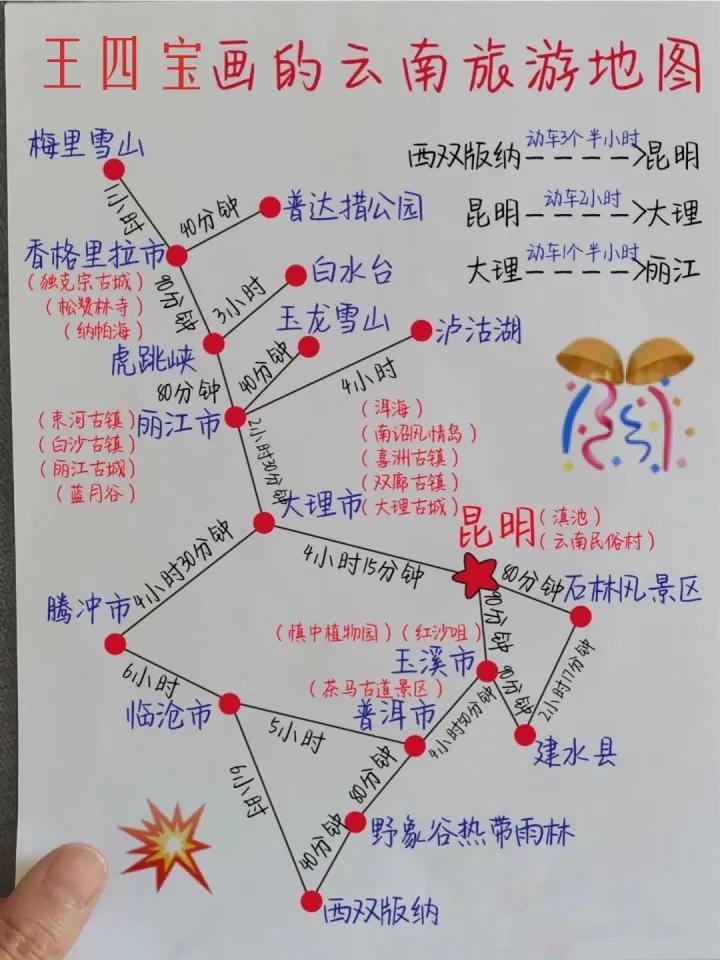 王四宝画的云南旅游地图
西双版纳 动车3个半小时 昆明
昆明 动车2小时 大理
大理 动车1个半小时 丽江
梅里雪山
1小时
40分钟
普达措公园
香格里拉市
(独克宗古城)
(松赞林寺)
(纳帕海)
90分钟
白水台
3小时
玉龙雪山
泸沽湖
虎跳峡
80分钟
40分钟
4小时
丽江市
(束河古镇)
(白沙古镇)
(丽江古城)
(蓝月谷)
2小时30分钟
(洱海)
(南诏风情岛)
(喜洲古镇)
(双廊古镇)
大理市(大理古城)
昆明(滇池)
(云南民俗村)
4小时30分钟
4小时15分钟
80分钟
石林风景区
腾冲市
90分钟
(慎中植物园)(红沙咀)
玉溪市
90分钟
2小时17分钟
6小时
(茶马古道景区)
临沧市
普洱市
4小时50分钟
5小时
建水县
6小时
80分钟
野象谷热带雨林
40分钟
西双版纳